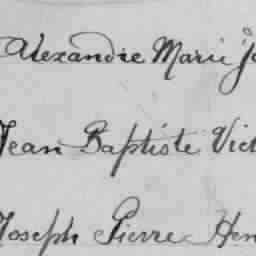 Alexandre Marie Jo
Jean Baptiste Vict
Joseph Pierre Hen